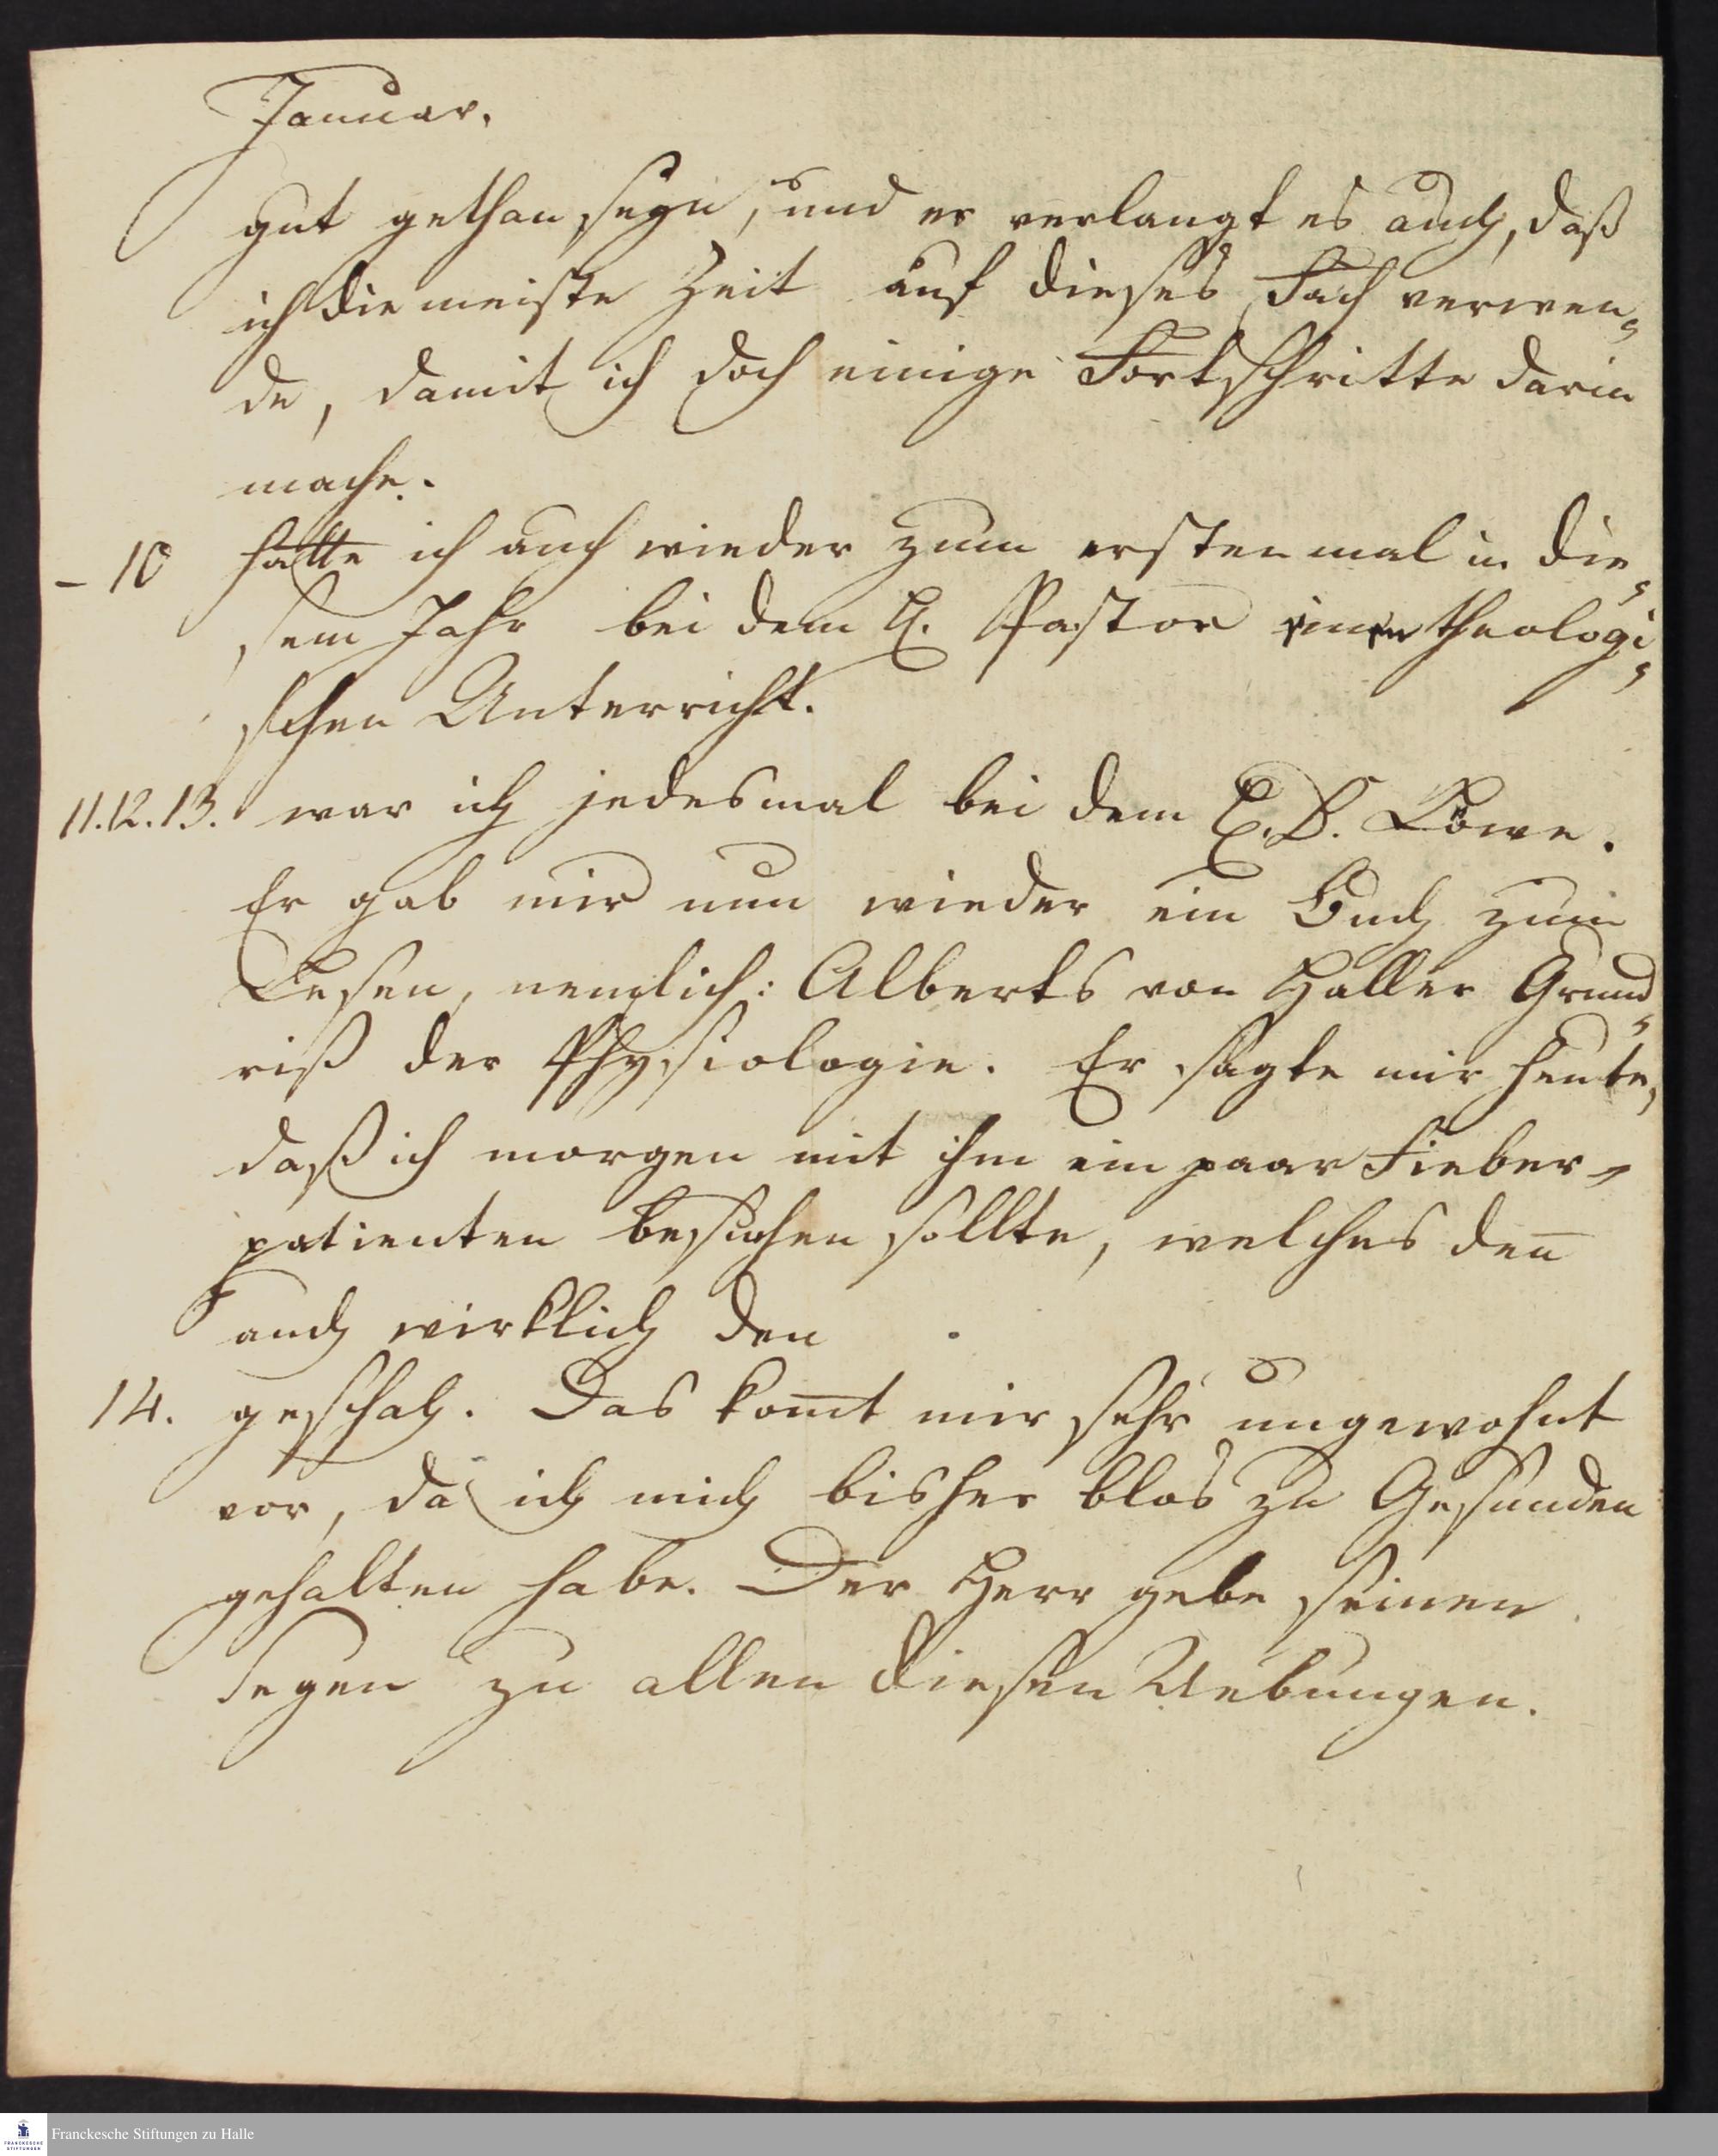 Januar.
gut gethan seyn, und er verlangt es auch, daß
ich die meiste Zeit auf dieses Fach verwen-
de, damit ich doch einige Fortschritte darin
mache.
- 10 hatte ich auch wieder zum erstenmal in die-
sem Jahr bei dem H. Pastor theologi-
schen Unterricht.
11.12.13. war ich jedesmal bei dem H. D. Löwe.
Er gab mir nun wieder ein Buch zum
Lesen, nemlich: Alberts von Haller Grund-
riß der Physiologie. Er sagte mir heute,
daß ich morgen mit ihm ein paar Fieber-
patienten besuchen sollte, welches den̄
auch wirklich den
14. geschah. Das kom̄t mir sehr ungewohnt
vor, da ich mich bisher blos zu Gesunden
gehalten habe. Der Herr gebe seinen
Segen zu allen diesen Uebungen.
Franckesche Stiftungen zu Halle
FRANCKESCHE
STIFTUNGEN